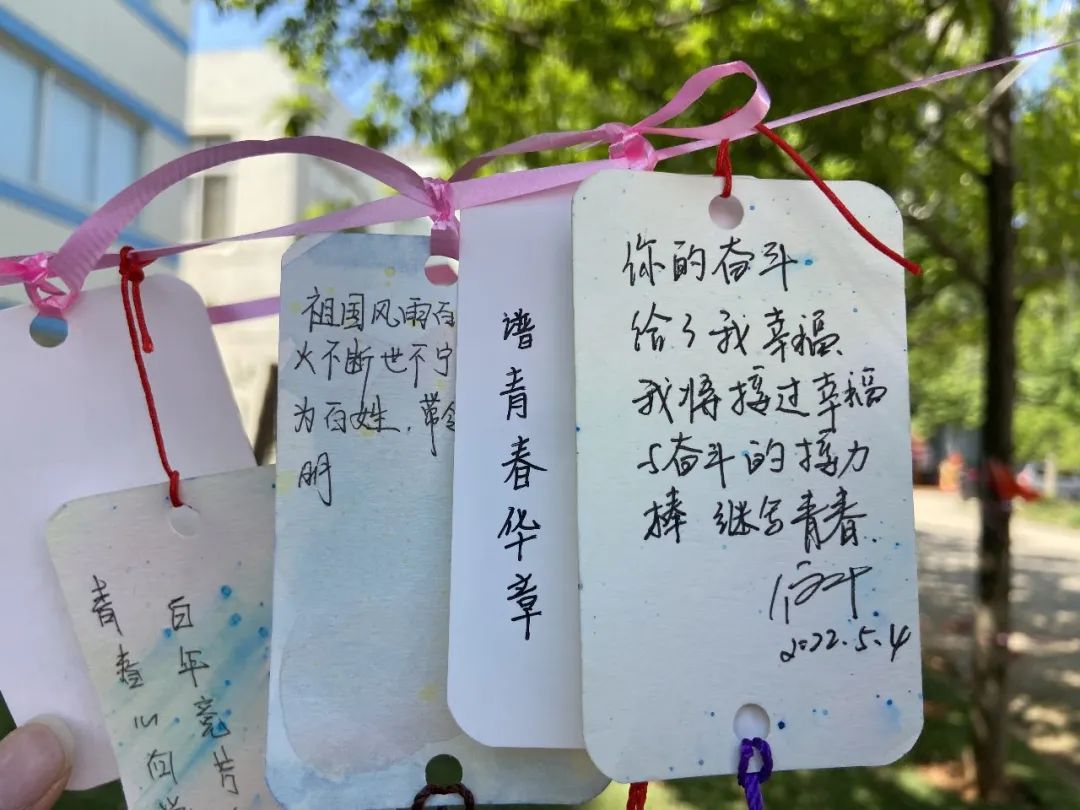 百年竞芳
青春心向
祖国风雨百
火不断世不宁
为百姓，带
明
谱青春华章
你的奋斗
给了我幸福
我将接过幸福
与奋斗的接力
棒 继写青春
2022.5.4